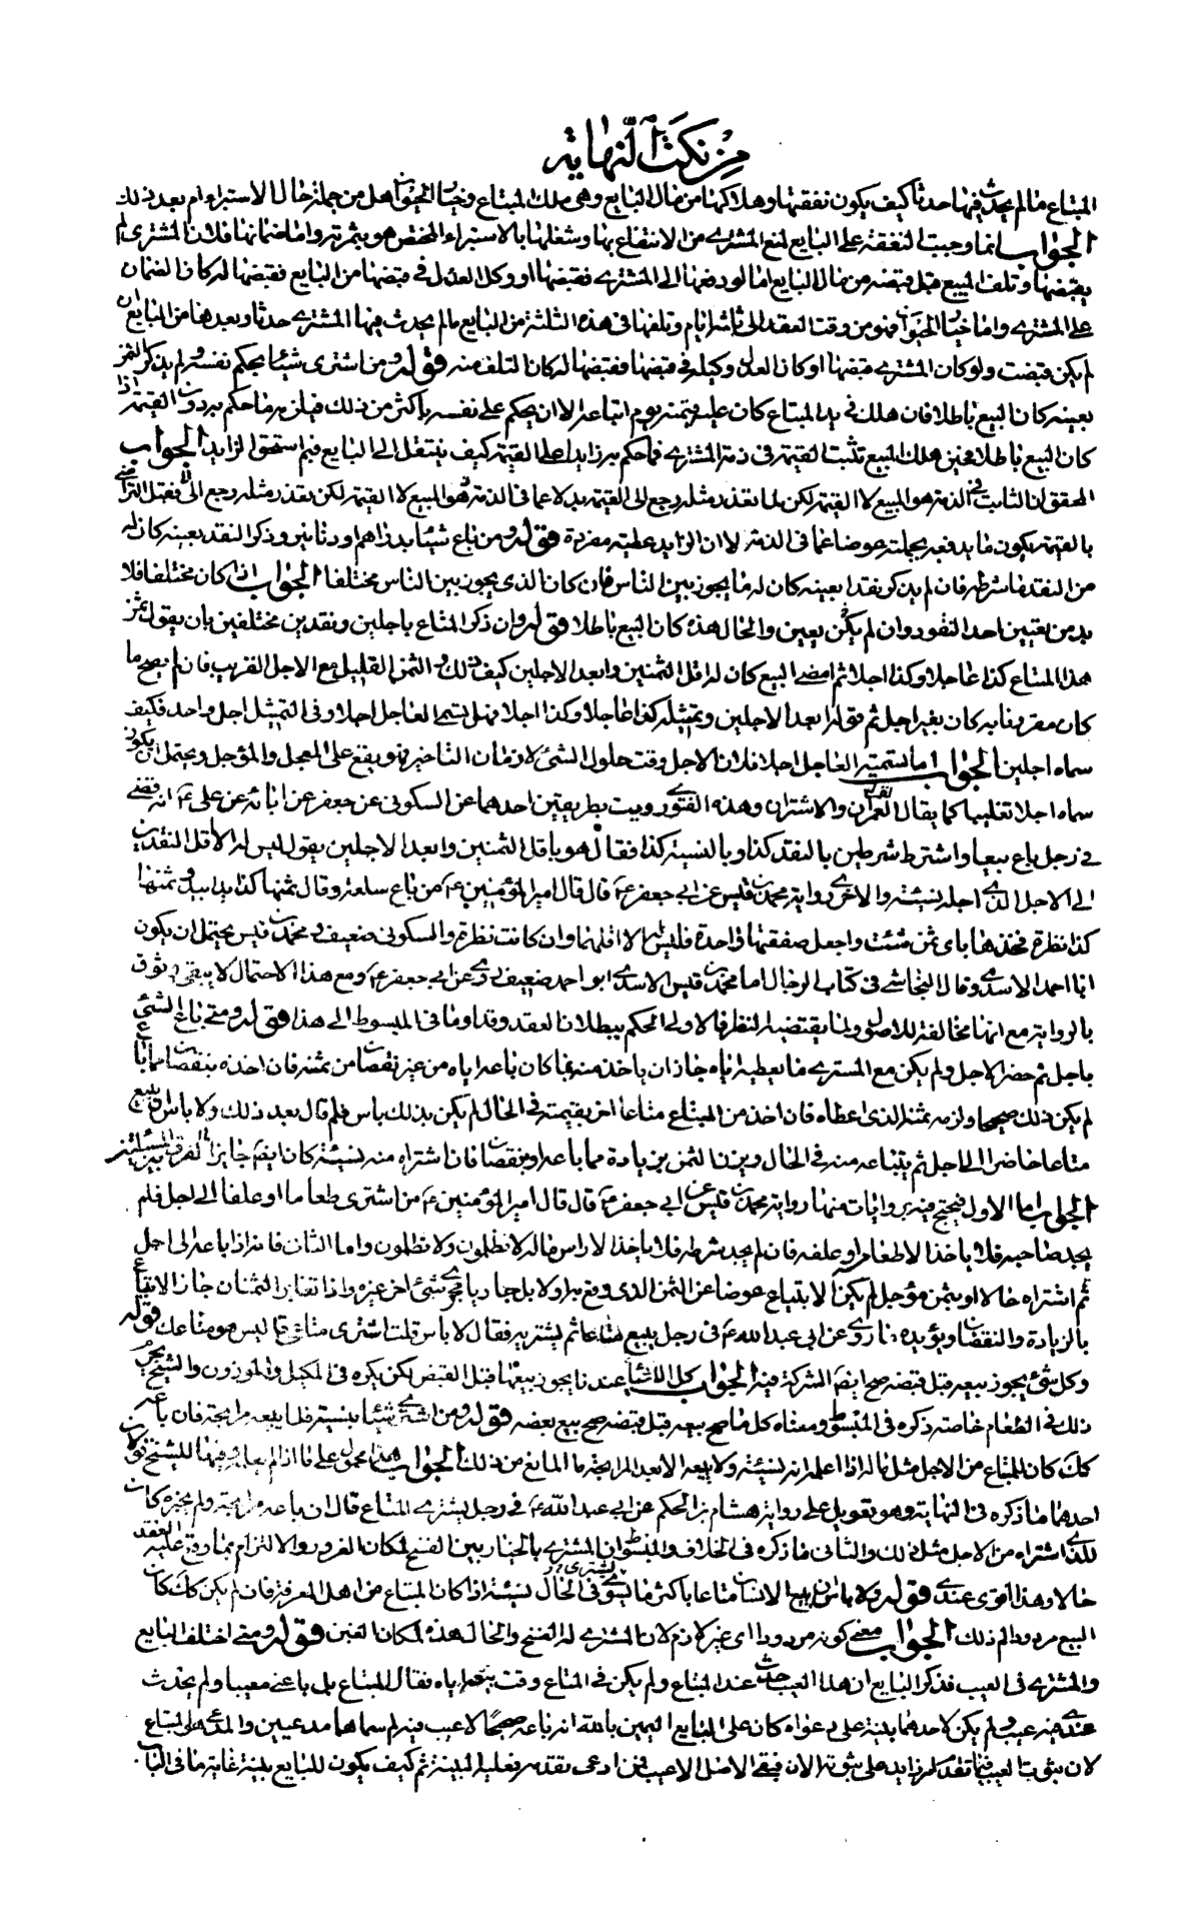 من نكت النهاية
المبتاع ما لم يحدث فيها حدثا كيف يكون نفقتها وهلاكها من مال البايع وهي ملك المبتاع وخيار الحيوان هل من جملته حال الاستبراء ام بعد ذلك
الجواب انما وجبت النفقة على البايع لمنع المشتري من الانتفاع بها وشغلها بالاستبراء المختص هو بثمرته واما ضمانها فلان المشتري لم
يقبضها وتلف المبيع قبل قبضه من مال البايع اما لو دفعها الى المشتري فقبضها او وكل العدل في قبضها من البايع فقبضها له كان الضمان
على المشتري واما خيار الحيوان فهو من وقت العقد الى ثلثة ايام وتلفها في هذه الثلثة من البايع ما لم يحدث فيها المشتري حدثا وبعدها من البايع ان
لم يكن قبضت ولو كان المشتري قبضها او كان العدل وكيله في قبضها فقبضها له كان التلف منه قوله ومن اشترى شيئا بحكم نفسه ولم يذكر الثمن
بعينه كان البيع باطلا فان هلك في يد المبتاع كان عليه قيمته يوم ابتاعه الا ان يحكم على نفسه باكثر من ذلك فيلزمه ما حكم به دون القيمة اذا
كان البيع باطلا فحين هلك المبيع تثبت القيمة في ذمة المشتري فما حكم به زايدا على القيمة كيف ينتقل الى البايع فبم استحق الزايد الجواب
المحقق ان الثابت في الذمة هو المبيع لا القيمة لكن لما تعذر مثله رجع الى القيمة بدلا عما في الذمة فهو المبيع لا القيمة لكن تعذر مثله رجع الى فقبل التراضي
بالقيمة يكون ما يدفعه بجملته عوضا عما في الذمة لا ان الزايد عطية مفردة قوله ومن باع شيئا بدراهم او دنانير وذكر النقد بعينه كان له
من النقد ما شرط فان لم يذكر نقدا بعينه كان له ما يجوز بين الناس فان كان الذي يجوز بين الناس مختلفا الجواب اذا كان مختلفا فلا
بد من تعيين احد النقود وان لم يكن تعيين والحال هذه كان البيع باطلا قوله وان ذكر المتاع باجلين ونقدين مختلفين بان يقول ثمن
هذا المتاع كذا عاجلا وكذا اجلا ثم امضى البيع كان له اقل الثمنين وابعد الاجلين كيف ذلك و الثمن القليل مع الاجل القريب فان لم يصح ما
كان مقرونا به كان بغير اجل ثم قوله ابعد الاجلين وتمثيله كذا عاجلا وكذا اجلا فهل يسمى العاجل اجلا وفي التمثيل اجل واحد فكيف
سماه اجلين الجواب اما تسمية العاجل اجلا فلان الاجل وقت حلول الشئ لا زمان التاخير فهو يقع على المعجل والمؤجل ويحتمل ان يكون
سماه اجلا تغليبا كما يقال القمران والاشتران وهذه الفتوى رويت بطريقين احدهما عن السكوني عن جعفر عن ابائه عن علي ع انه قضى
في رجل باع بيعا واشترط شرطين بالنقد كذا وبالنسيئة كذا فقال هو باقل الثمنين وابعد الاجلين يقول ليس له الا اقل النقدين
الى الاجل الذي اجله نسيئة والاخرى رواية محمد بن قيس عن ابي جعفر ع قال قال امير المؤمنين ع من باع سلعة وقال ثمنها كذا يدا بيد وثمنها
كذا نظرة فخذها باي ثمن شئت واجعل صفقتها واحدة فليس له الا اقلهما وان كانت نظرة والسكوني ضعيف و محمد بن قيس يحتمل ان يكون
ابا احمد الاسدي وقال النجاشي في كتاب الرجال اما محمد بن قيس الاسدي ابو احمد ضعيف روى عن ابي جعفر ع ومع هذا الاحتمال لا يبقى وثوق
بالرواية مع انها مخالفة للاصول ولما يقتضيه النظر فالاولى الحكم ببطلان العقد وقد اومأ في المبسوط الى هذا قوله ومتى باع الشئ
باجل ثم حضر الاجل ولم يكن مع المشتري ما يعطيه اياه جاز ان ياخذ منه بما كان باعه اياه من غير نقصان من ثمنه فان اخذه بنقصان مما باع
لم يكن ذلك صحيحا ولزمه ثمنه الذي اعطاه فان اخذ من المبتاع متاعا اخر بقيمته في الحال لم يكن بذلك باس فلم قال بعد ذلك ولا باس ان يبيع
متاعا حاضرا الى اجل ثم يبتاعه منه في الحال ويزن الثمن بزيادة مما باعه او بنقصان فان اشتراه منه بنسيئة كان ايضا جايزا ما الفرق بين المسئلتين
الجواب اما الاول فيحتج فيه بروايات منها رواية محمد بن قيس عن ابي جعفر ع قال قال امير المؤمنين ع من اشترى طعاما او علفا الى اجل فلم
يجد صاحبه فلا ياخذ الا طعامه او علفه فان لم يجد شرطه فلا ياخذ الا راس ماله لا تظلمون ولا تظلمون واما الثاني فانه اذا باعه الى اجل
ثم اشتراه حالا او بثمن مؤجل لم يكن الابتياع عوضا عن الثمن الذي وقع به اولا بل جاريا مجرى شئ اخر غيره واذا تغاير الثمنان جاز الابتياع
بالزيادة والنقصان ويؤيده ما روي عن ابي عبد الله ع في رجل يبيع متاعا ثم يشتريه فقال لا باس قلت اشترى متاعي قال ليس هو متاعك قوله
وكل شئ يجوز بيعه قبل قبضه صح ايضا الشركة فيه الجواب كل الاشياء عندنا يجوز بيعها قبل القبض لكن يكره في المكيل والموزون والشيخ يحرم
ذلك في الطعام خاصة ذكره في المبسوط ومعناه كل ما صح بيعه قبل قبضه صح بيع بعضه قوله ومن اشترى شيئا بنسيئة فلا يبيعه مرابحة فان باعه
كك كان للمبتاع من الاجل مثل ماله اذا علم انه نسيئة ولا يبيعه الا بعد المرابحة ما المانع من ذلك الجواب هذا محمول على ما اذا لم يعلم وفيها للشيخ قولان
احدهما ما ذكره في النهاية وهو تعويل على رواية هشام بن الحكم عن ابي عبد الله ع في رجل يشتري المتاع قال ان باعه مرابحة ولم يخبره كان
للذي اشتراه من الاجل مثل ذلك والثاني ما ذكره في الخلاف والمبسوط ان المشتري بالخيار بين الفسخ لمكان الغرور والالتزام بما وقع عليه العقد
حالا وهذا اقوى عندي قوله ولا باس ان يبيع الانسان متاعا باكثر مما يسوى في الحال نسيئة اذا كان المبتاع من اهل المعرفة فان لم يكن كك كان
البيع مردودا لم ذلك الجواب معنى كونه مردودا اي غير لازم لان المشتري له الفسخ والحال هذه لمكان الغبن قوله ومتى اختلف البايع
والمشتري في العيب فذكر البايع ان هذا العيب حدث عند المبتاع ولم يكن في المتاع وقت بيعه اياه فقال المبتاع بل باعني معيبا ولم يحدث
عندي فيه عيب ولم يكن لاحدهما بينة على دعواه كان على البايع اليمين بالله انه باعه صحيحا لا عيب فيه لم سماها مدعيين والمدعي هو المبتاع
لان ثبوت العيب فيما تقدم زايد على ثبوته الان فيبقى الاصل الا عيب فمن ادعى تقدمه فعليه البينة ثم كيف يكون للبايع بينة غاية ما في الباب